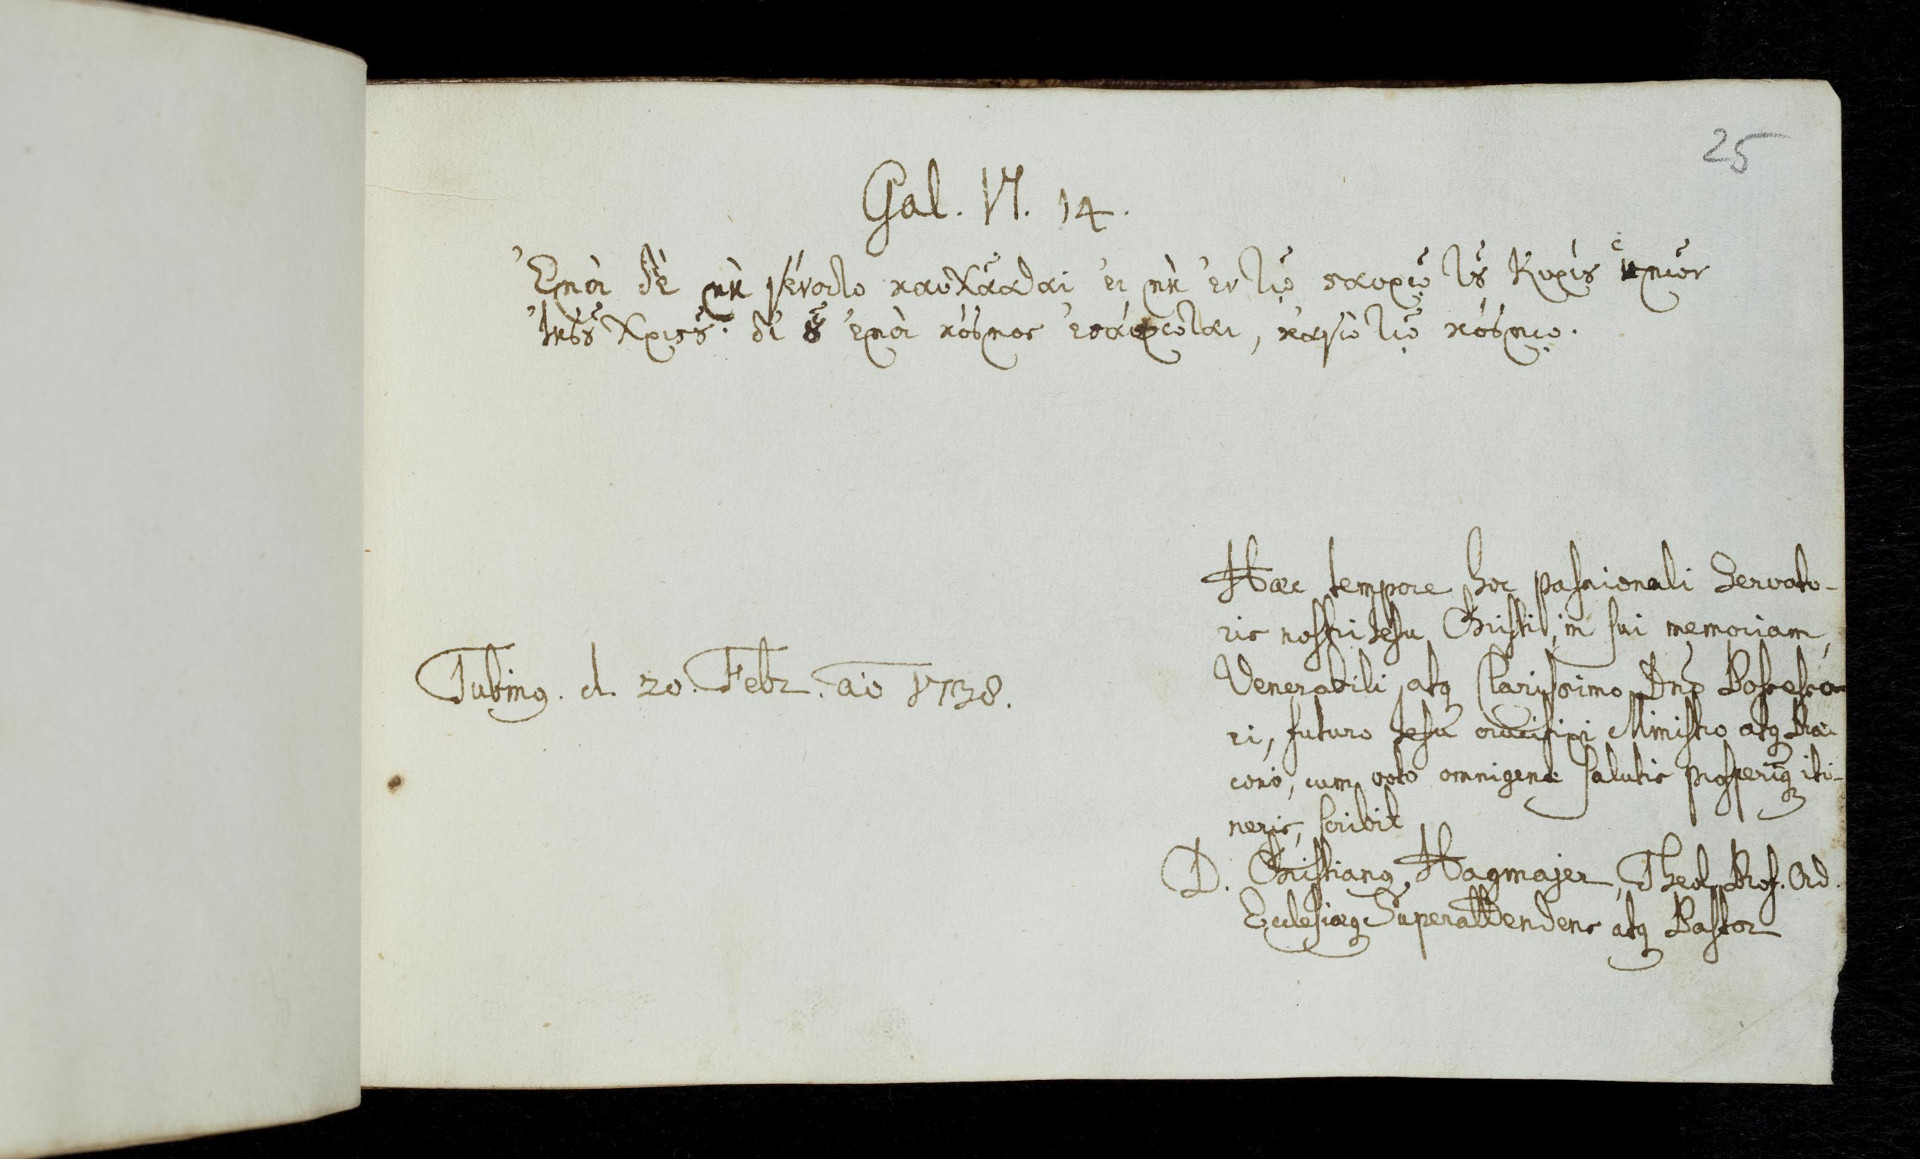 25
Gal. VI. 14.
Ἐμοὶ δὲ μὴ γένοιτο καυχᾶσθαι εἰ μὴ ἐν τῷ σαυρῷ τȣ͂ Κυρίȣ ἡμῶν
Ἰησȣ͂ Χριϛȣ͂· δἰ ȣ͗͂ ἐμοὶ κόσμος ἐϛαύρωται, κᾀγὼ τῷ κόσμῳ.
Hæc tempore hoc passionali Servato-
ris nostri Jesu Christi, in sui memoriam,
Venerabili atq Clarissimo Dnō Possesso-
ri, futuro Jesu crucifixi Ministro atq Dia-
cono, cum voto omnigenæ salutis prosperiq iti-
neris, scribit
Tubing. d. 20. Febr. aō 1738.
D. Christianq Hagmajer, Theol. Prof. Ord.
Ecclesiæq Superattendens atq Pastor